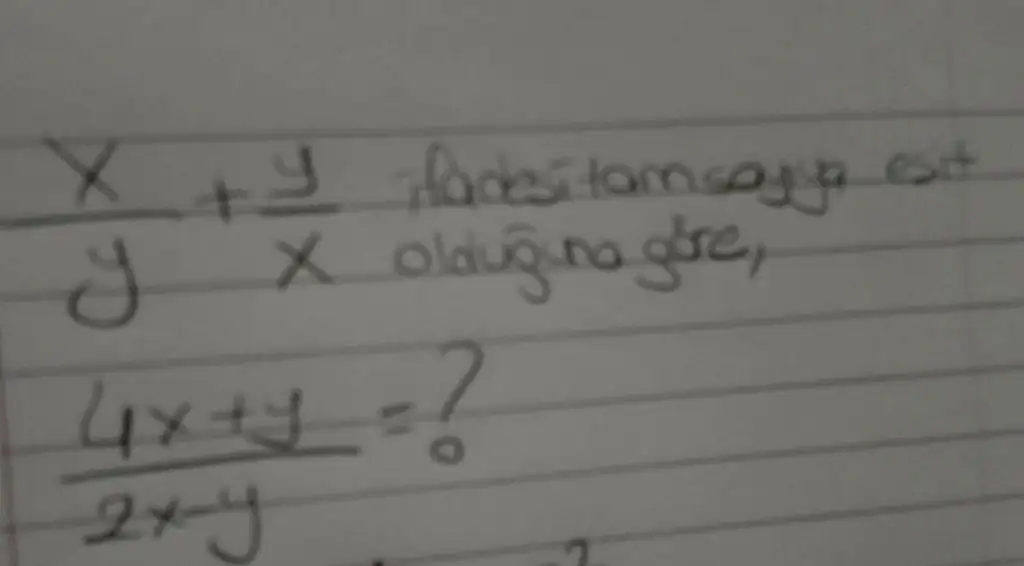 x/y + y/x ifadesi tamsayıya eşit
olduğuna göre,
4x+y/2x-y = ?